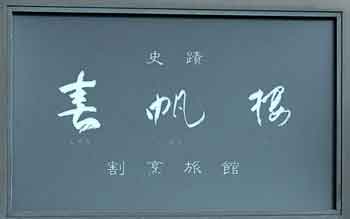 史蹟
春帆楼
割烹旅館